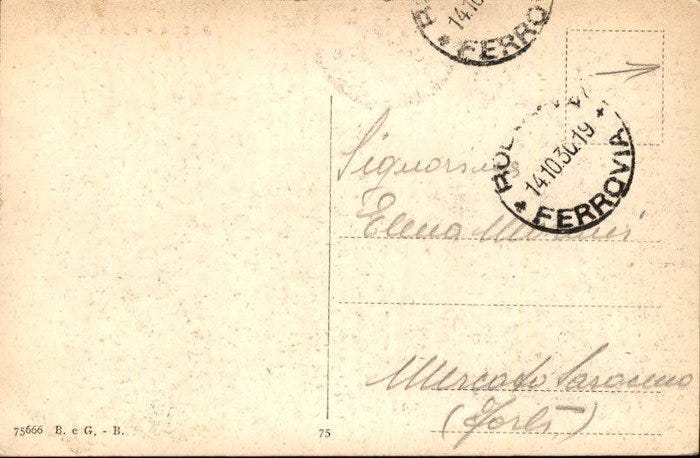 14.10
FERRO
BO
14.10.30.19
FERROVIA
Signorina
Elena
Mercato Saraceno
(Forlì)
75666 B. e G. - B.
75